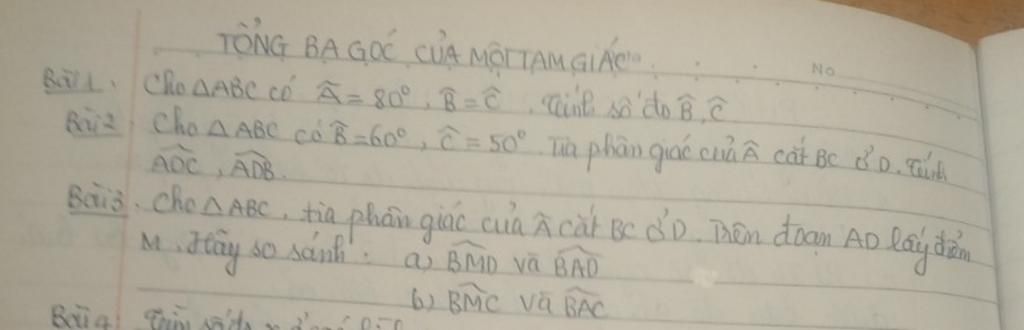 TỔNG BA GÓC CỦA MỘT TAM GIÁC
No
Bài 1. Cho ΔABC có Â = 80°, B̂ = Ĉ. Tính số đo B̂, Ĉ
Bài 2. Cho ΔABC có B̂ = 60°, Ĉ = 50°. Tia phân giác của Â cắt BC ở D. Tính
ADC, ADB.
Bài 3. Cho ΔABC, tia phân giác của Â cắt BC ở D. Trên đoạn AD lấy điểm
M. Hãy so sánh: a) BMD và BAD
b) BMC và BAC
Bài 4